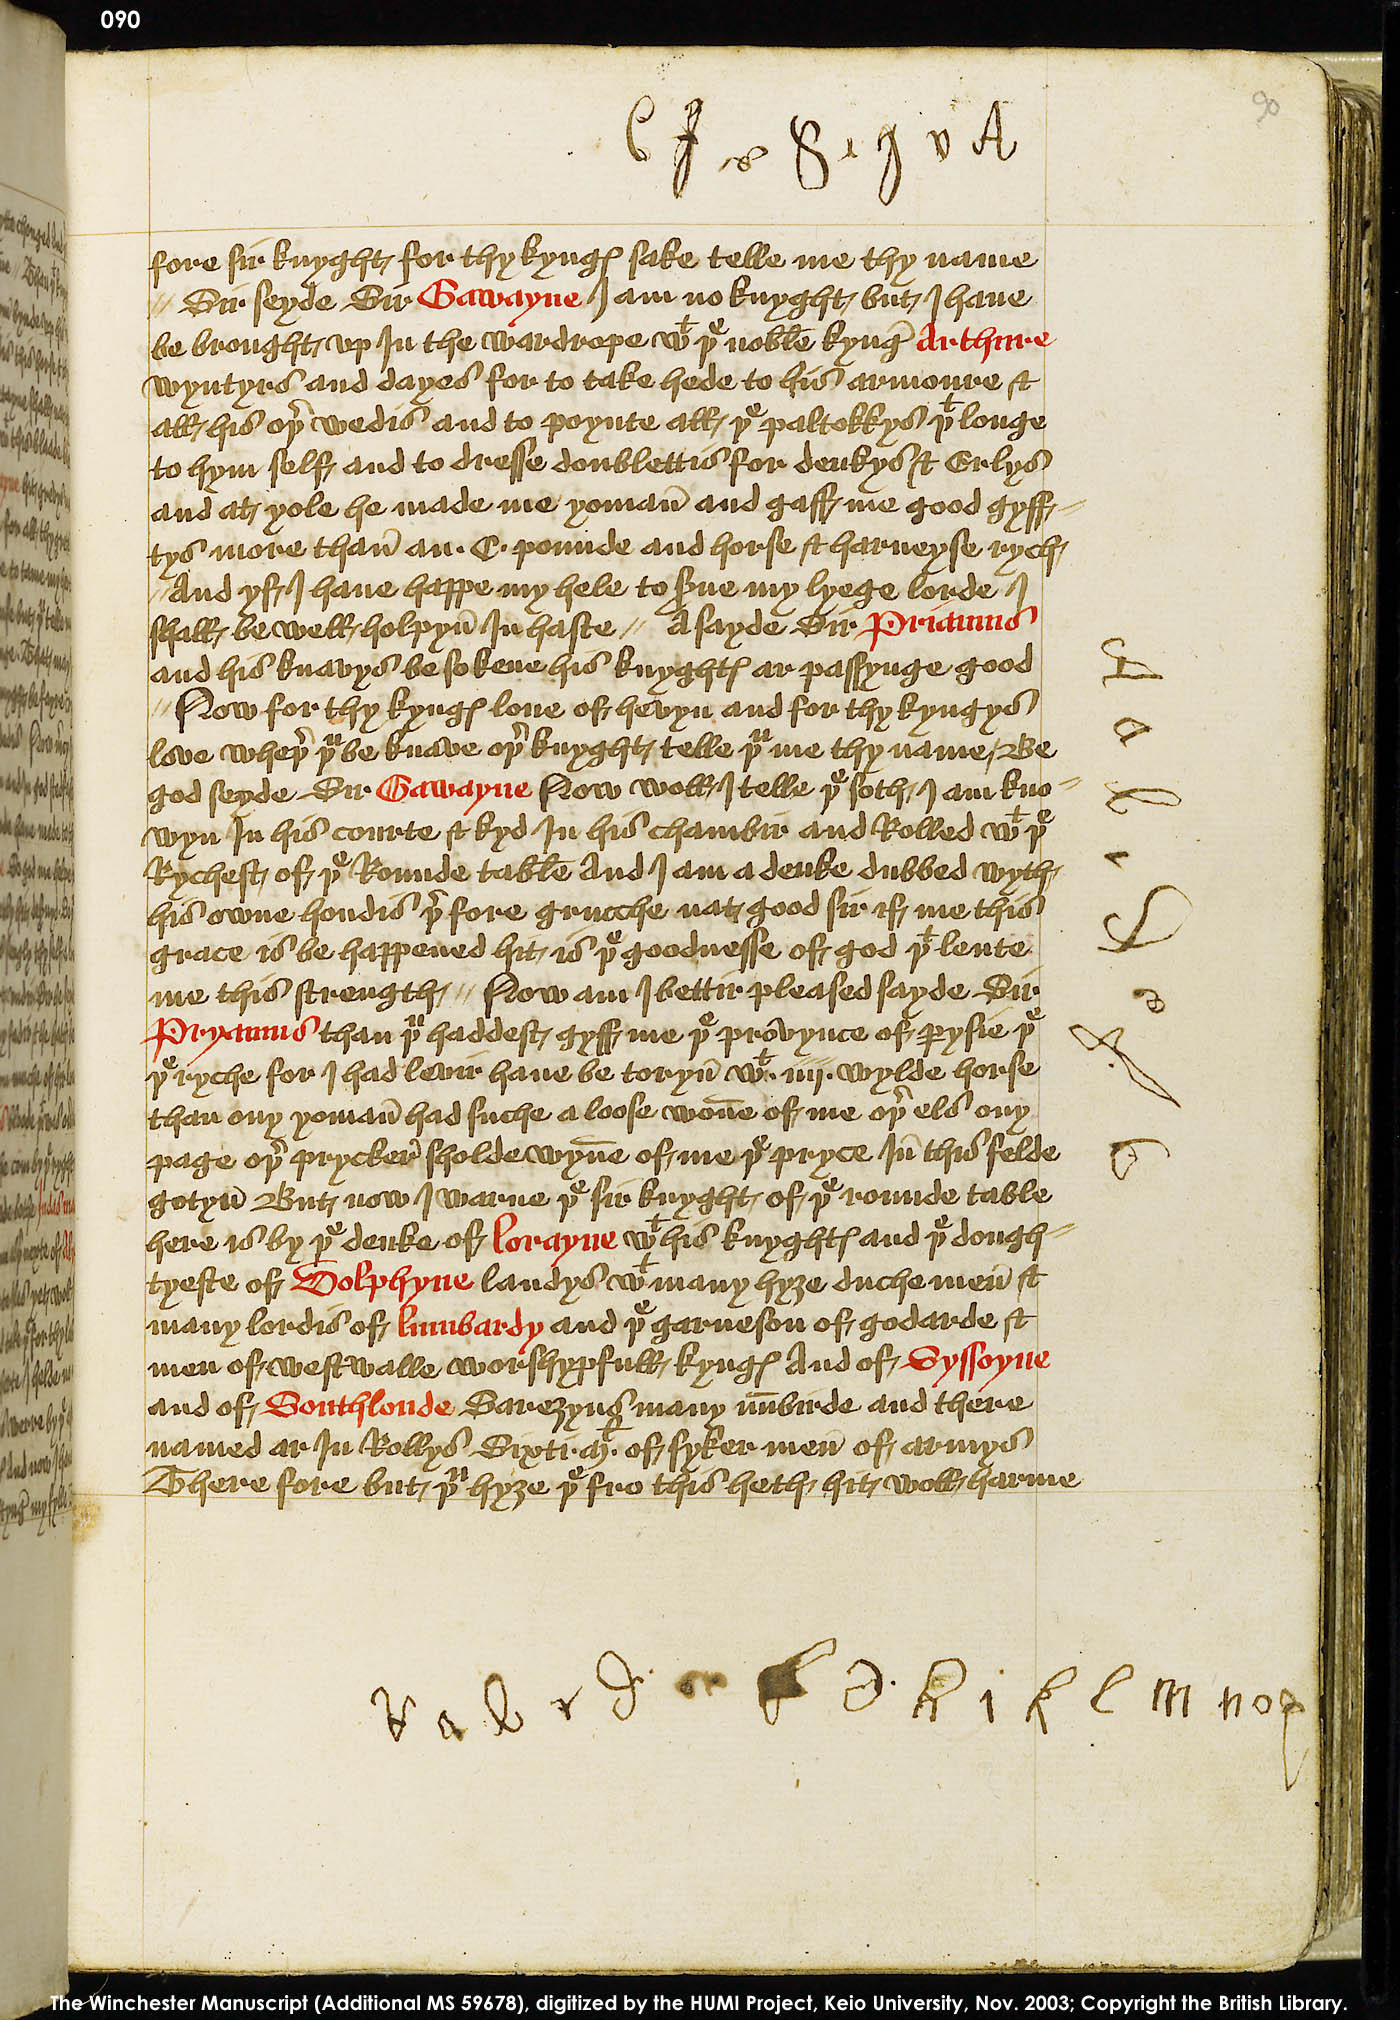 090
90
fore sir knyght for thy kyngꝭ sake telle me thy name
// Sir seyde Sir Gawayne I am no knyght but I haue
be brought vp In the wardrope wᵗ þᵉ noble kyng Arthure
wyntyrs and dayes for to take hede to his armoure &
all his oþ̾ wedis and to poynte all þᵉ paltokkys þᵗ longe
to hym self and to dresse doublettis for deukys & Erlys
and at yole he made me yoman̄ and gaff me good gyff//
tys more than̄ an · C · pounde and horse & harneyse rych
// And yf I haue happe my hele to s̾ue my lyege lorde I
shall be well holpyn̄ In haste // A sayde Sir Priamus
and his knavys be so kene his knyghtꝭ ar passynge good
// Now for thy kyngꝭ loue of hevyn and for thy kyngys
love wheþ̾ þᵘ be knave oþ̾ knyght telle þᵘ me thy name / Be
god seyde Sir Gawayne Now woll I telle þᵉ soth / I am kno//
wyn In his courte & kyd In his chambir and Rolled wᵗ þᵉ
Rychest of þᵉ Rounde table And I am a deuke dubbed wyth
his owne hondis þ̾ fore grucche nat good sir if me this
grace is be happened hit is þᵉ goodnesse of god þᵗ lente
me this strength // Now am I bettir pleased sayde Sir
Pryamus than þᵘ haddest gyff me þᵉ provynce of pysie þᵉ
þᵉ ryche for I had levir haue be toryn̄ wᵗ · iiij · wylde horse
than ony yoman̄ had suche a loose won̄e of me oþ̾ els ony
page oþ̾ prycker̾ sholde wyn̄e of me þᵉ pryce In̄ this felde
gotyn̄ But now I warne þᵉ sir knyght of þᵉ rounde table
here is by þᵉ deuke of lorayne wᵗ his knyghtꝭ and þᵉ dough//
tyeste of Dolphyne landys wᵗ many hyȝe duche men̄ &
many lordis of lumbardy and þᵉ garneson of godarde &
men of westwalle worshypfull kyngꝭ And of Syssoyne
and of Southlonde Sarezyns many nn̄birde and there
named ar In Rollys Sixti · Mˡ · of syker men̄ of armys
There fore but þᵘ hyȝe þᵉ fro this heth hit woll harme
The Winchester Manuscript (Additional MS 59678), digitized by the HUMI Project, Keio University, Nov. 2003; Copyright the British Library.